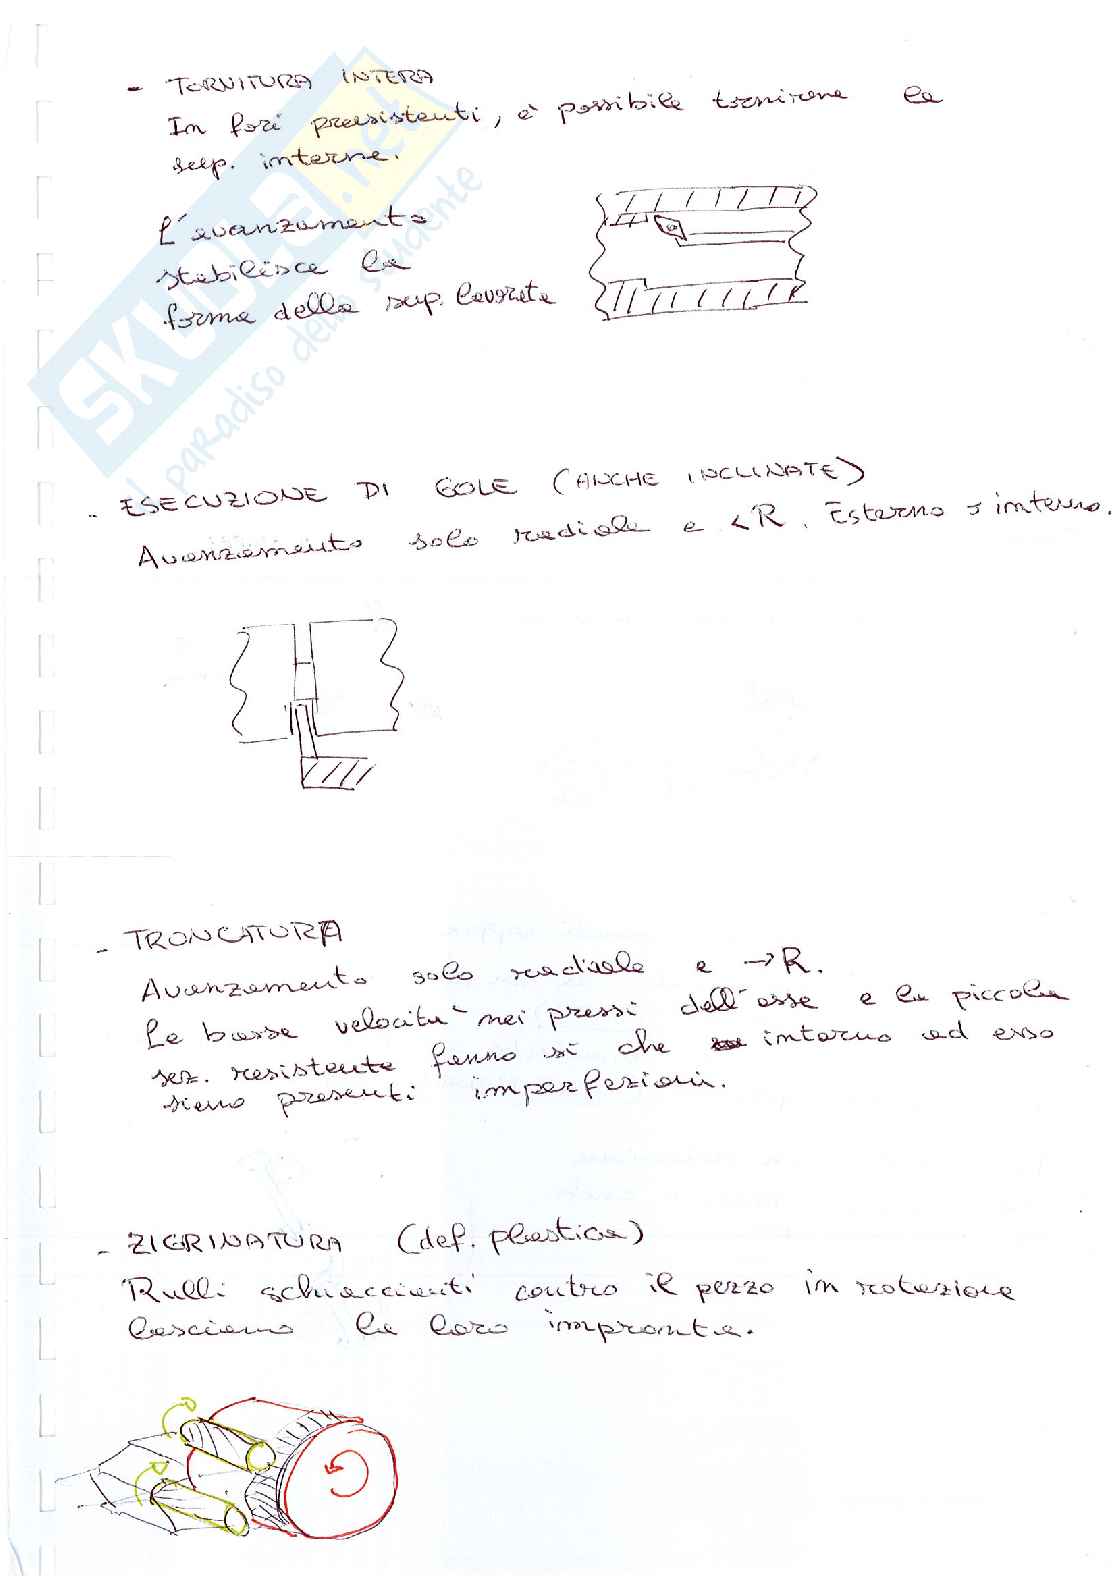 - TORNITURA INTERA
In fori preesistenti, è possibile tornirone le
sup. interne.
L'avanzamento
stabilisce la
forma della sup. lavorata
SKUOLA.net
il paradiso dello studente
- ESECUZIONE DI GOLE (ANCHE INCLINATE)
Avanzamento solo radiale e <R. Esterno o interno.
- TRONCATURA
Avanzamento solo radiale e →R.
Le basse velocità nei pressi dell'asse e la piccola
sez. resistente fanno sì che intorno ad esso
siano presenti imperfezioni.
- ZIGRINATURA (def. plastica)
Rulli schiaccianti contro il pezzo in rotazione
lasciano la loro impronta.